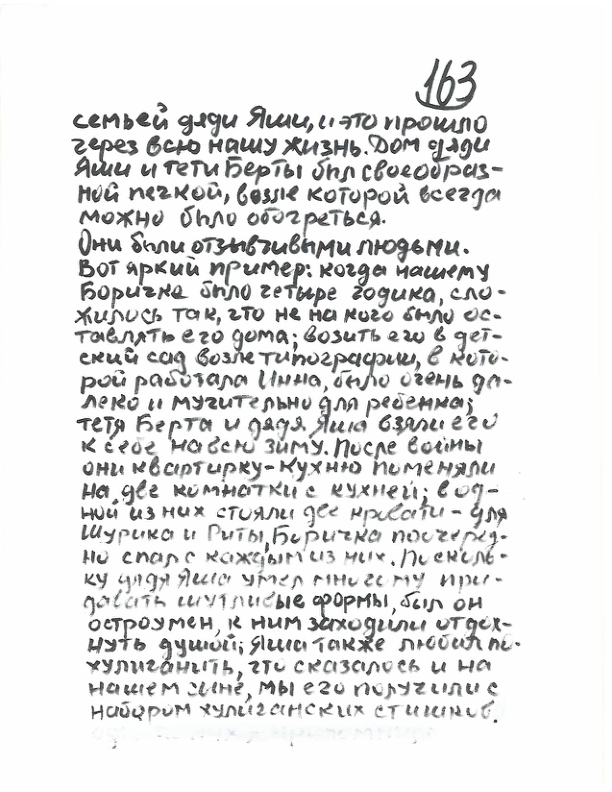 163
семьей дяди Яши, и это прошло
через всю нашу жизнь. Дом дяди
Яши и тети Берты был своеобраз-
ной печкой, возле которой всегда
можно было обогреться.
Они были отзывчивыми людьми.
Вот яркий пример: когда нашему
Боричке было четыре годика, сло-
жилось так, что не на кого было ос-
тавлять его дома; возить его в дет-
ский сад возле типографии, в кото-
рой работала Инна, было очень да-
леко и мучительно для ребенка;
тетя Берта и дядя Яша взяли его
к себе на всю зиму. После войны
они квартирку-кухню поменяли
на две комнатки с кухней; в од-
ной из них стояли две кровати - для
Шурика и Риты, Боричка поочеред-
но спал с каждым из них. Посколь-
ку дядя Яша умел многому при-
давать шутливые формы, был он
остроумен, к ним заходили отдох-
нуть душой; Яша также любил по-
хулиганить, что сказалось и на
нашем сыне, мы его получили с
набором хулиганских стишков.